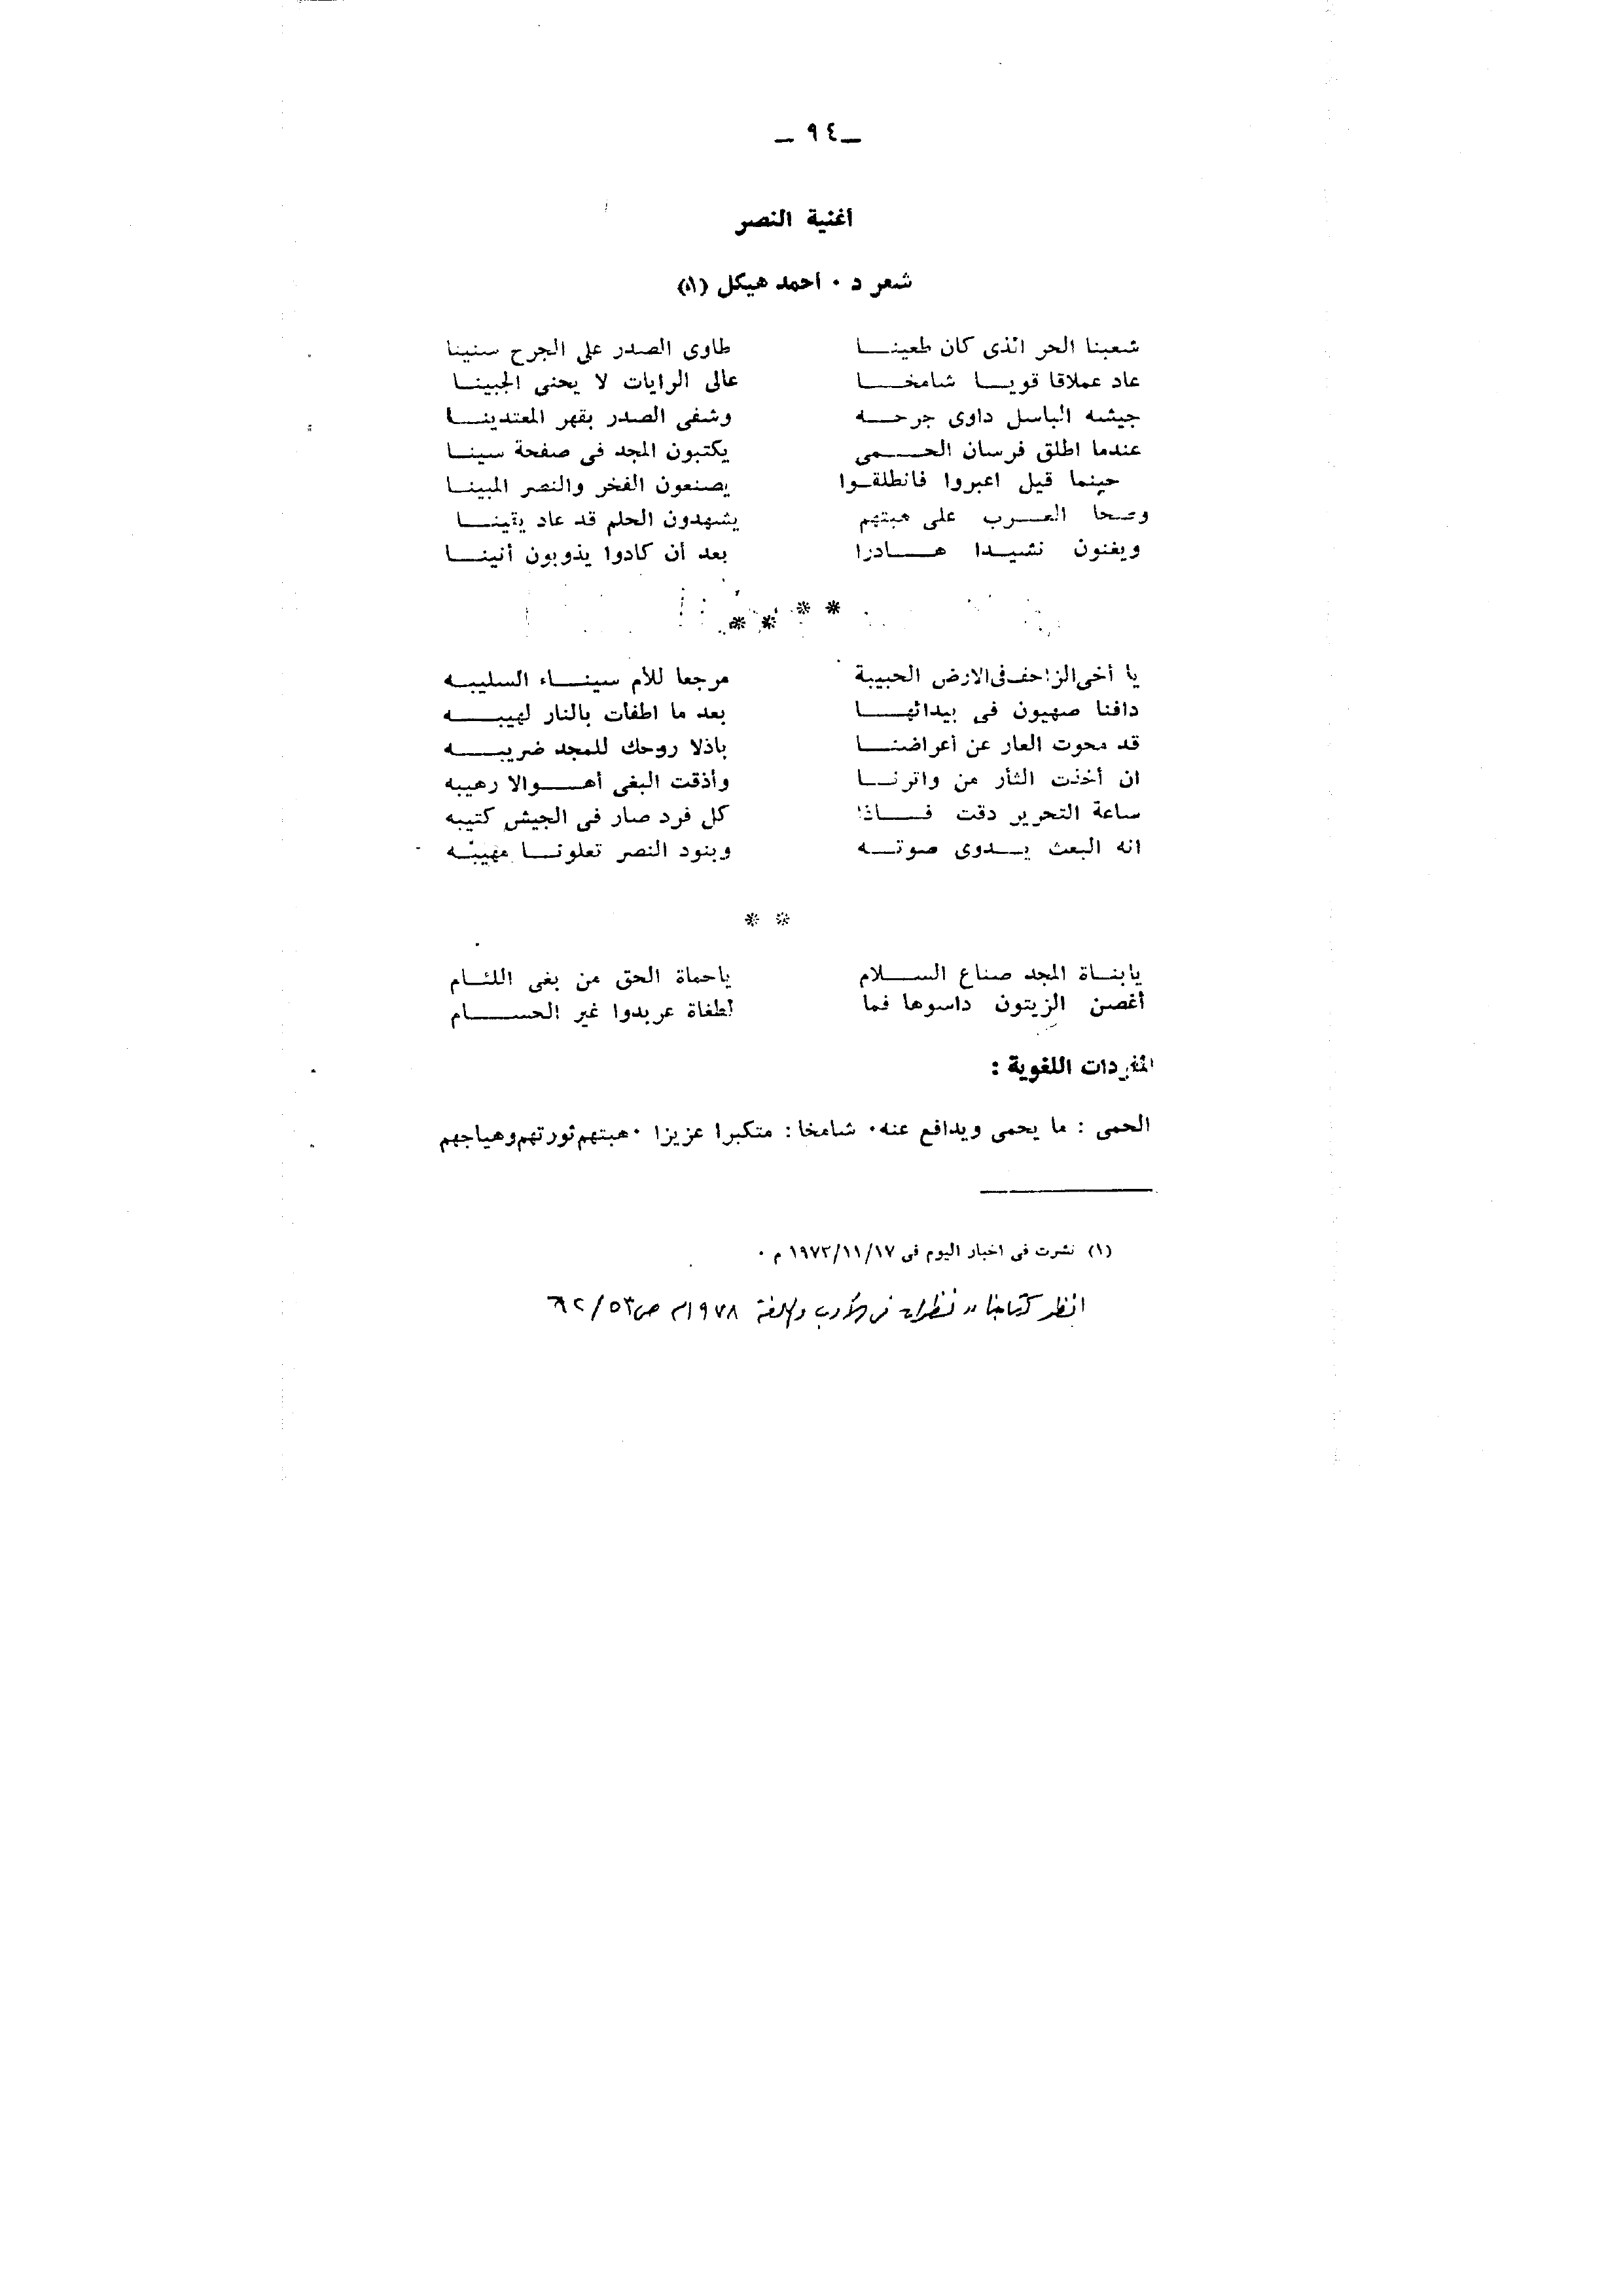 ــ ٩٤ ــ
أغنية النصر
شعر د . احمد هيكل (١)
شعبنا الحر الذى كان طعينــا طاوى الصدر على الجرح سنينا
عاد عملاقا قويــا شامخــا عالى الرايات لا يحنى الجبينــا
جيشه الباسل داوى جرحــه وشفى الصدر بقهر المعتدينــا
عندما اطلق فرسان الحــمى يكتبون المجد فى صفحة سينــا
حينما قيل اعبروا فانطلقـوا يصنعون الفخر والنصر المبينــا
وصحا العــرب على هبتهم يشهدون الحلم قد عاد يقينــا
ويغنون نشيــدا هــادرا بعد أن كادوا يذوبون أنينــا
* * * *
يا أخى الزاحف فى الارض الحبيبة مرجعا للأم سينــاء السليبــه
دافنا صهيون فى بيدائهــا بعد ما اطفات بالنار لهيبــه
قد محوت العار عن أعراضنــا باذلا روحك للمجد ضريبــه
ان أخذت الثأر من واترنــا وأذقت البغى أهــوالا رهيبه
ساعة التحرير دقت فــاذا كل فرد صار فى الجيش كتيبه
انه البعث يــدوى صوتــه وبنود النصر تعلونــا مهيبــه
* *
يابنــاة المجد صناع الســلام ياحماة الحق من بغى اللئــام
أغصن الزيتون داسوها فما لطغاة عربدوا غير الحســام
المفردات اللغوية :
الحمى : ما يحمى ويدافع عنه . شامخا : متكبرا عزيزا . هبتهم ثورتهم وهياجهم
(١) نشرت فى اخبار اليوم فى ١٩٧٣/١١/١٧ م .
انظر كتابنا ,, نظرات فى الأدب واللغة ١٩٧٨م ص ٥٣/٦٢